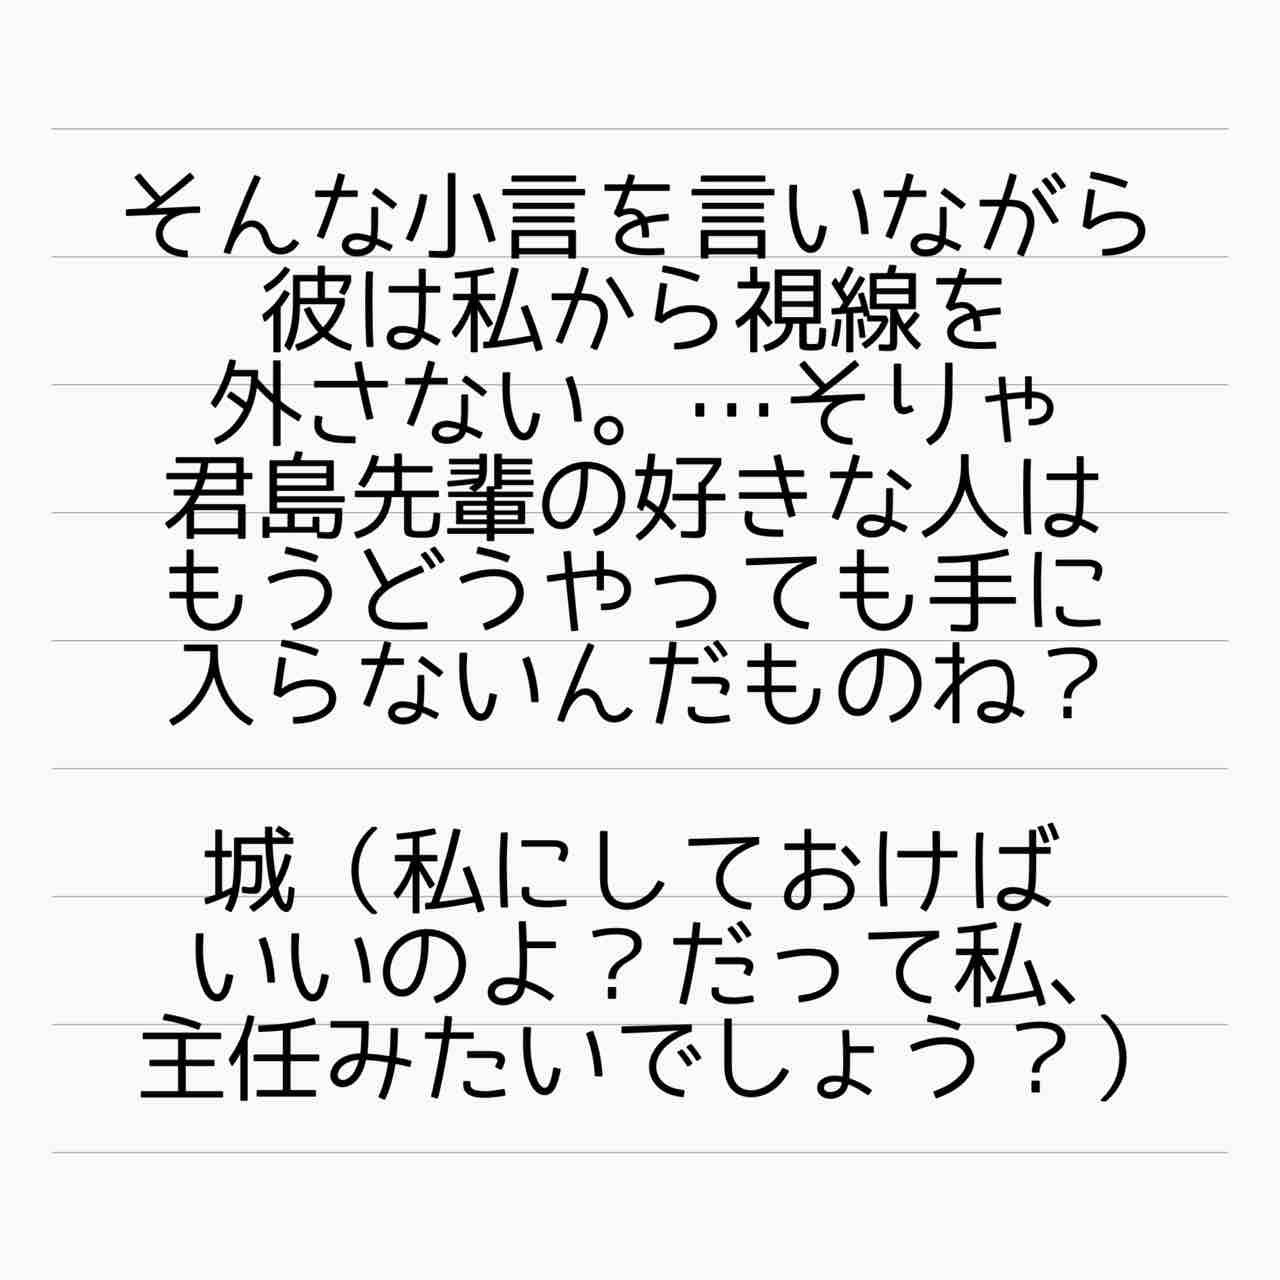 そんな小言を言いながら
彼は私から視線を
外さない。…そりゃ
君島先輩の好きな人は
もうどうやっても手に
入らないんだものね？
城（私にしておけば
いいのよ？だって私、
主任みたいでしょう？）